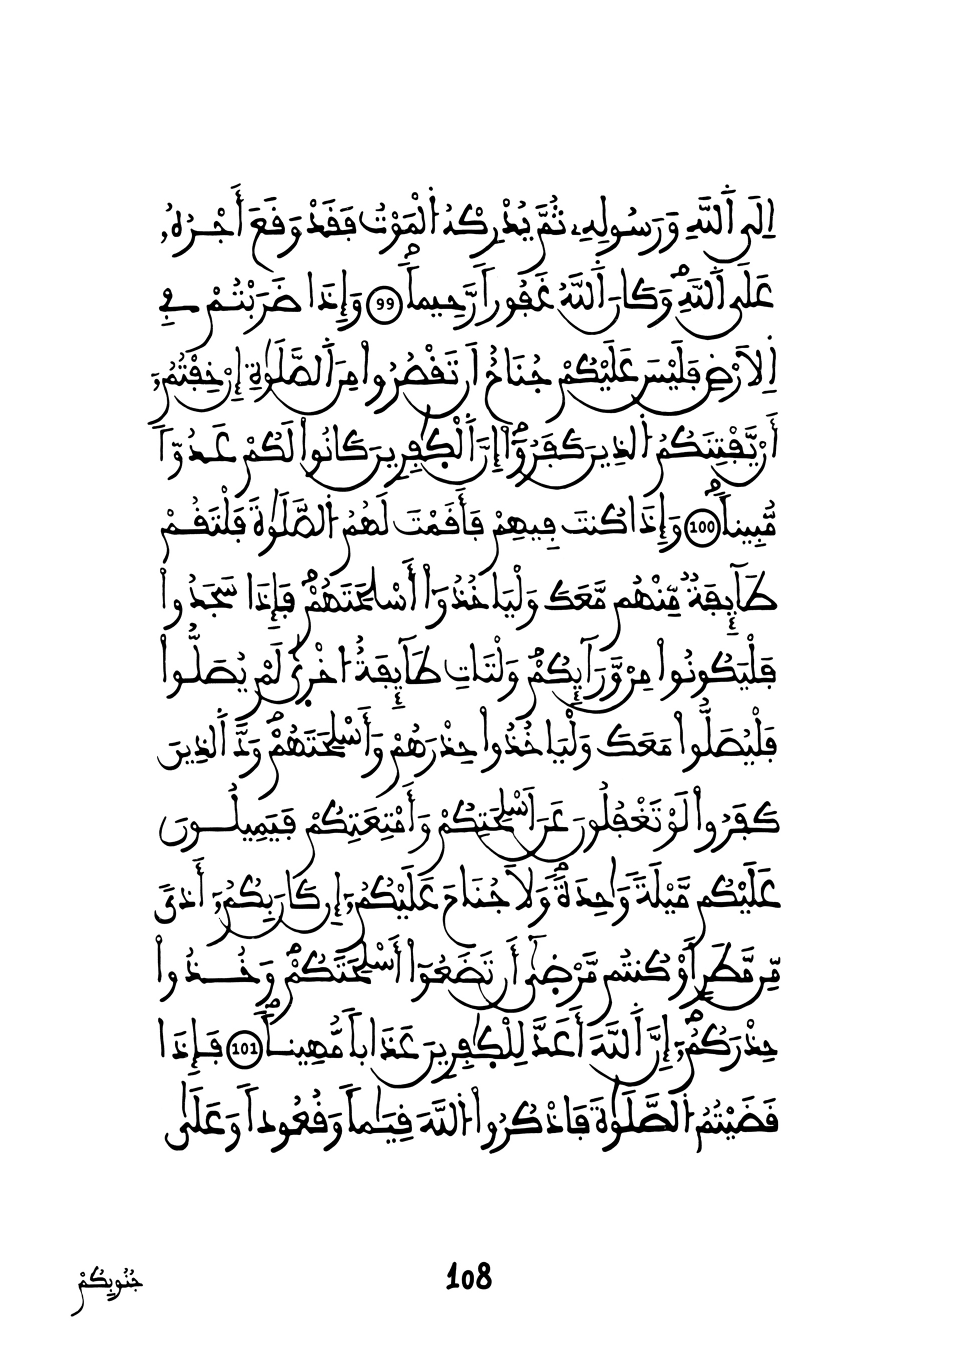 اِلَي اَ۬للَّهِ وَرَسُولِهِۦ ثُمَّ يُدْرِكْهُ اُ۬لْمَوْتُ فَقَدْ وَقَعَ أَجْرُهُۥ
عَلَي اَ۬للَّهِۖ وَكَانَ اَ۬للَّهُ غَفُوراٗ رَّحِيماٗۖ 99 وَإِذَا ضَرَبْتُمْ فِے
اِ۬لَارْضِ فَلَيْسَ عَلَيْكُمْ جُنَاحٌ اَن تَقْصُرُواْ مِنَ اَ۬لصَّلَوٰةِ إِنْ خِفْتُمُۥٓ
أَنْ يَّفْتِنَكُمُ اُ۬لذِينَ كَفَرُوٓاْۖ إِنَّ اَ۬لْكٰفِرِينَ كَانُواْ لَكُمْ عَدُوّاٗ
مُّبِيناٗۖ 100 وَإِذَا كُنتَ فِيهِمْ فَأَقَمْتَ لَهُمُ اُ۬لصَّلَوٰةَ فَلْتَقُمْ
طَآئِفَةٞ مِّنْهُم مَّعَكَ وَلْيَاخُذُوٓاْ أَسْلِحَتَهُمْۖ فَإِذَا سَجَدُواْ
فَلْيَكُونُواْ مِنْ وَّرَآئِكُمْۖ وَلْتَاتِ طَآئِفَةٌ اخْر۪يٰ لَمْ يُصَلُّواْ
فَلْيُصَلُّواْ مَعَكَ وَلْيَاخُذُواْ حِذْرَهُمْ وَأَسْلِحَتَهُمْۖ وَدَّ اَ۬لذِينَ
كَفَرُواْ لَوْ تَغْفُلُونَ عَنَ اَسْلِحَتِكُمْ وَأَمْتِعَتِكُمْ فَيَمِيلُونَ
عَلَيْكُم مَّيْلَةٗ وَٰحِدَةٗۖ وَلَا جُنَاحَ عَلَيْكُمُۥٓ إِن كَانَ بِكُمُۥٓ أَذيٗ
مِّن مَّطَرٍ اَوْ كُنتُم مَّرْض۪يٰٓ أَن تَضَعُوٓاْ أَسْلِحَتَكُمْۖ وَخُذُواْ
حِذْرَكُمُۥٓۖ إِنَّ اَ۬للَّهَ أَعَدَّ لِلْكٰفِرِينَ عَذَاباٗ مُّهِيناٗۖ 101 فَإِذَا
قَضَيْتُمُ اُ۬لصَّلَوٰةَ فَاذْكُرُواْ اُ۬للَّهَ قِيَٰماٗ وَقُعُوداٗ وَعَلَيٰ
جُنُوبِكُمْ
108